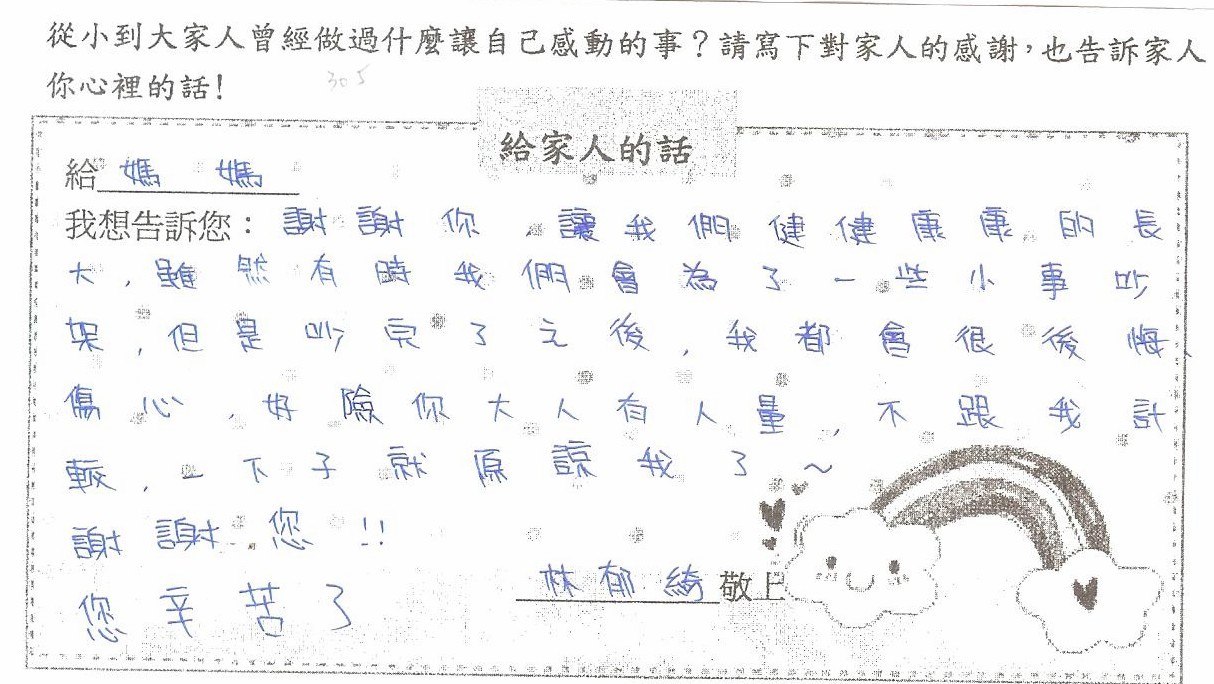 從小到大家人曾經做過什麼讓自己感動的事？請寫下對家人的感謝，也告訴家人
你心裡的話！
305
給家人的話
給 媽 媽
我想告訴您：謝謝你，讓我們健健康康的長
大，雖然有時我們會為了一些小事吵
架，但是吵完了之後，我都會很後悔、
傷心，好險你大人有大量，不跟我計
較，一下子就原諒我了～
謝謝您!!
您辛苦了
林郁綺敬上